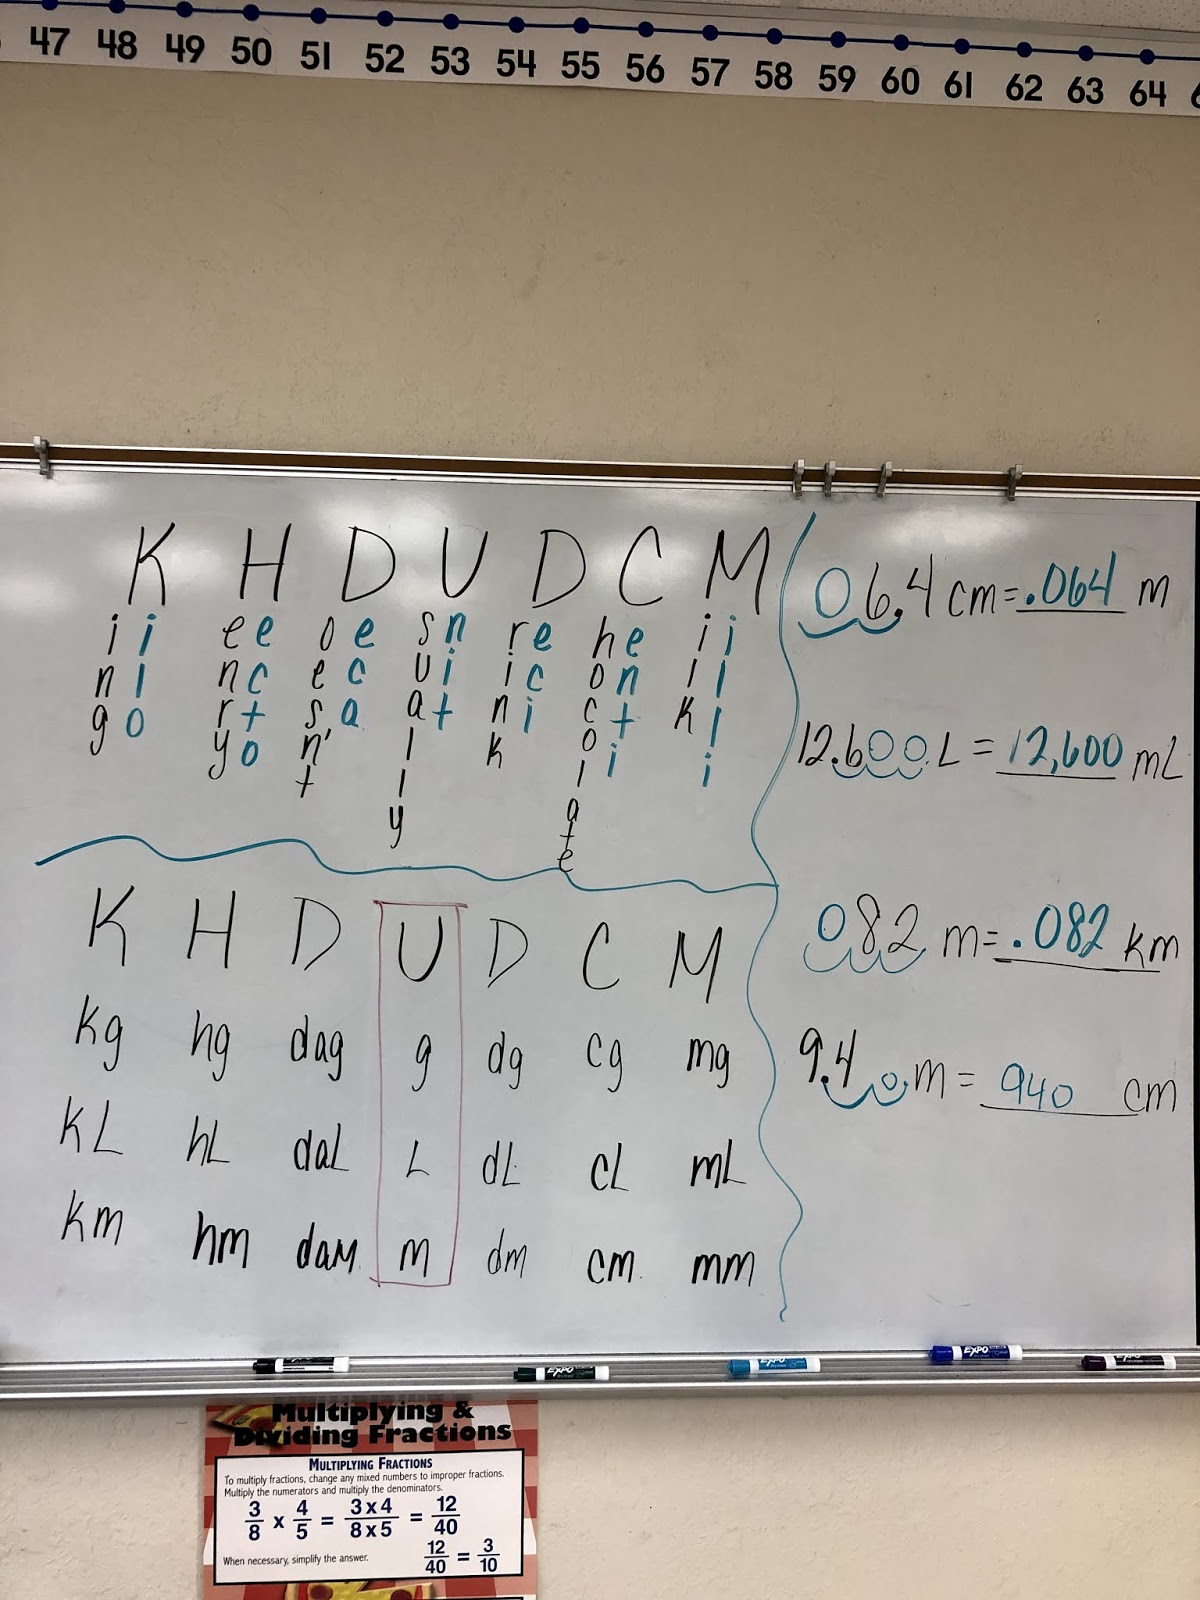 47 48 49 50 51 52 53 54 55 56 57 58 59 60 61 62 63 64
K H D U D C M
ing ilo
enry ecto
oesn't eca
sually nit
rink eci
hocolate enti
ilk illi
06.4 cm = .064 m
12.600. L = 12,600 mL
082 m = .082 km
9.40. m = 940 cm
K H D U D C M
kg hg dag g dg cg mg
kL hL daL L dL cL mL
km hm dam m dm cm mm
EXPO EXPO EXPO
Multiplying &
Dividing Fractions
MULTIPLYING FRACTIONS
To multiply fractions, change any mixed numbers to improper fractions.
Multiply the numerators and multiply the denominators.
3/8 x 4/5 = 3 x 4/8 x 5 = 12/40
When necessary, simplify the answer. 12/40 = 3/10